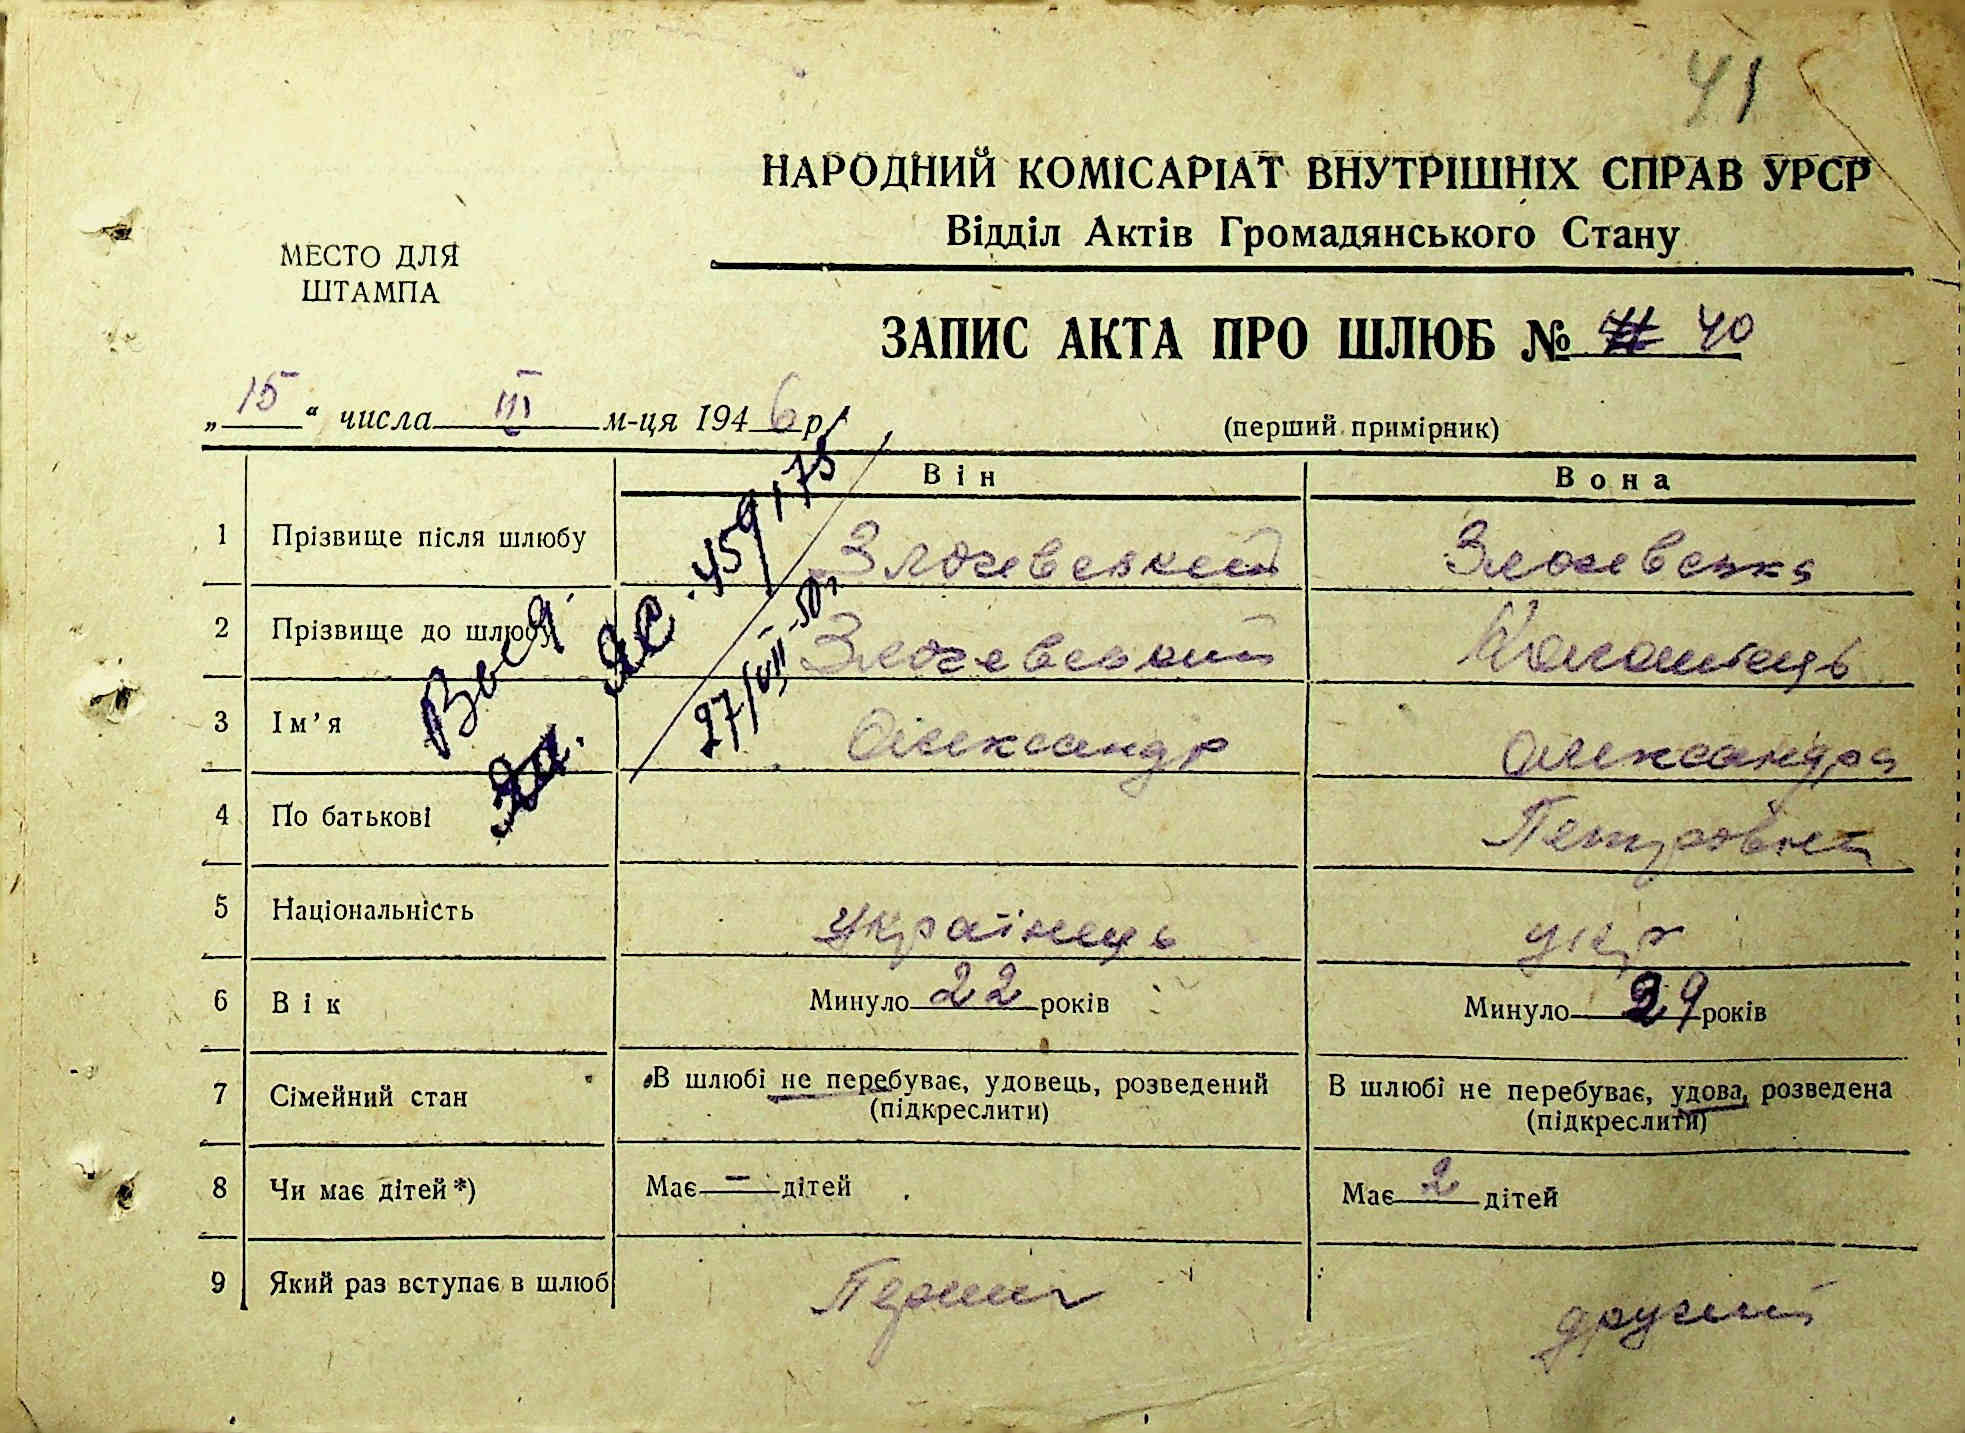 41
НАРОДНИЙ КОМІСАРІАТ ВНУТРІШНІХ СПРАВ УРСР
Відділ Актів Громадянського Стану
МЕСТО ДЛЯ
ШТАМПА
ЗАПИС АКТА ПРО ШЛЮБ № 40
„15“ числа III м-ця 1946 р.
(перший примірник)
Він Вона
1 Прізвище після шлюбу Злочевський Злочевська
2 Прізвище до шлюбу Злочевський
3 Ім’я Олександр Олександра
4 По батькові Петровна
5 Національність українець укр
6 Вік Минуло 22 років Минуло 29 років
7 Сімейний стан В шлюбі не перебуває, удовець, розведений (підкреслити) В шлюбі не перебуває, удова, розведена (підкреслити)
8 Чи має дітей*) Має - дітей Має 2 дітей
9 Який раз вступає в шлюб Перший другий
27/VII-50г